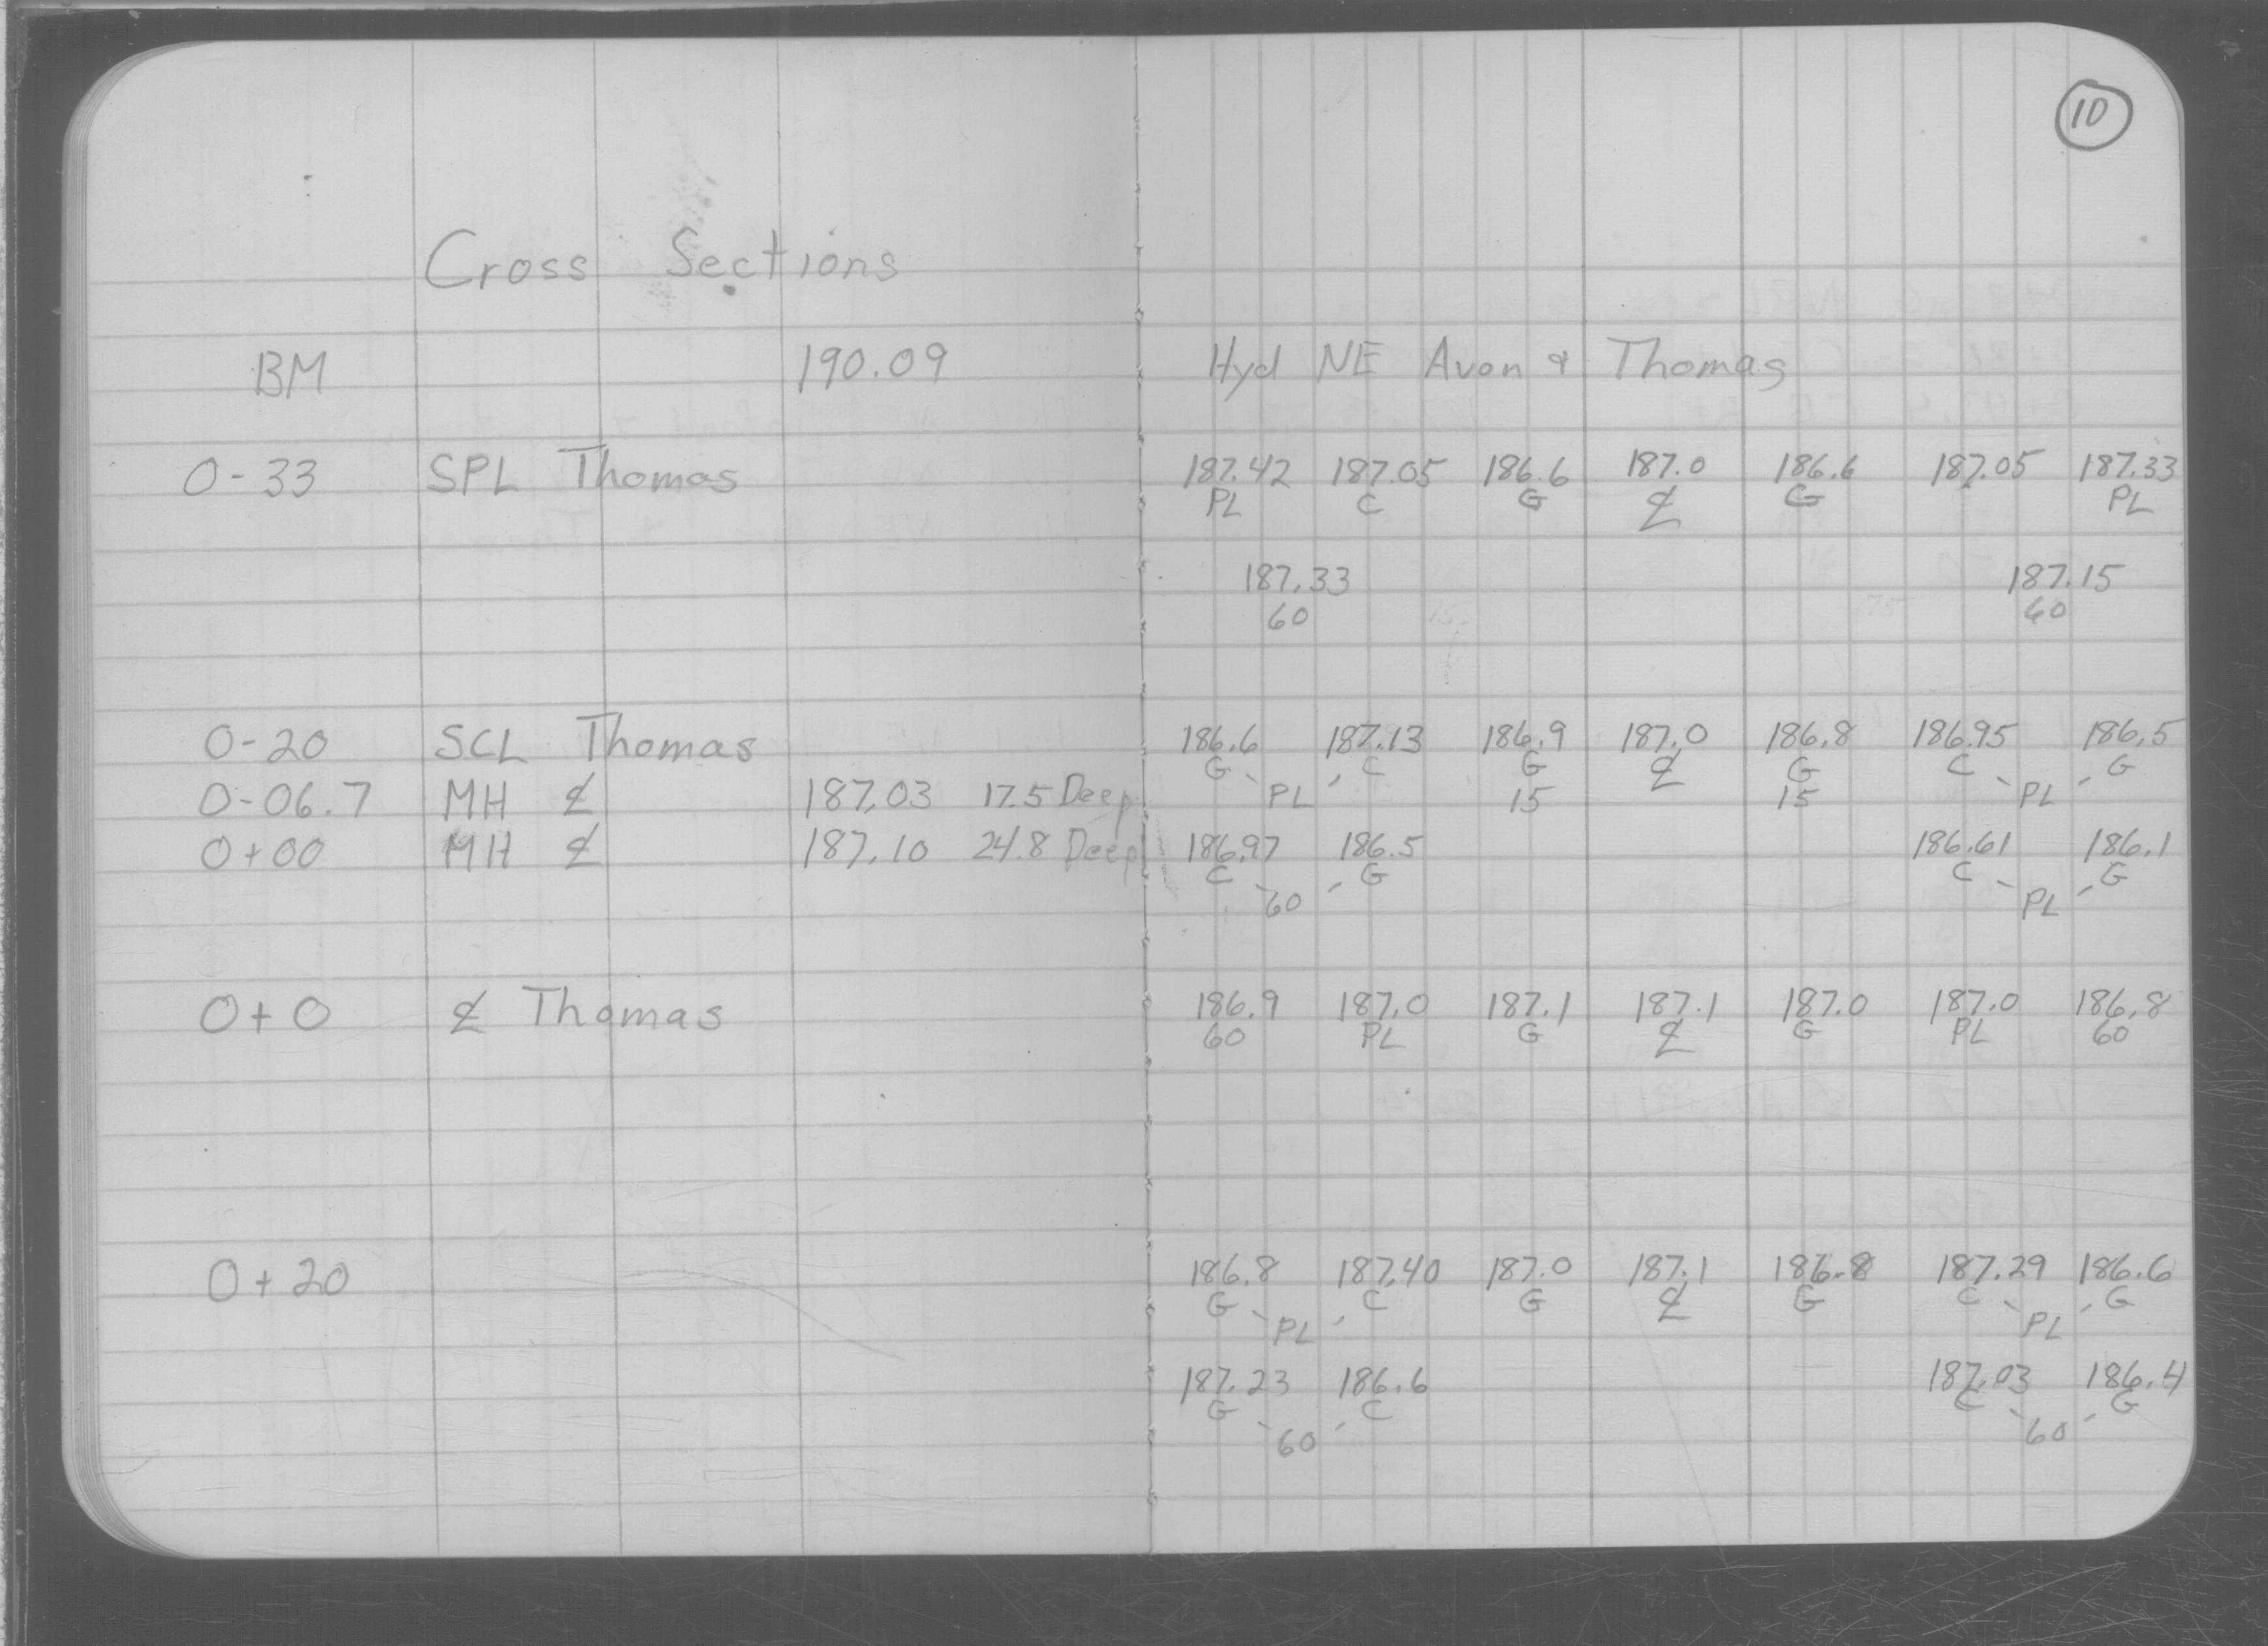 10
Cross Sections
BM 190.09 Hyd NE Avon & Thomas
0-33 SPL Thomas 187.42 187.05 186.6 187.0 186.6 187.05 187.33
PL C G ℄ G PL
187.33 187.15
60 60
0-20 SCL Thomas 186.6 187.13 186.9 187.0 186.8 186.95 186.5
G C G ℄ G C G
0-06.7 MH ℄ 187.03 17.5 Deep PL 15 15 PL
0+00 MH ℄ 187.10 24.8 Deep 186.97 186.5 186.61 186.1
C G C G
60 PL
0+0 ℄ Thomas 186.9 187.0 187.1 187.1 187.0 187.0 186.8
60 PL G ℄ G PL 60
0+20 186.8 187.40 187.0 187.1 186.8 187.29 186.6
G C G ℄ G C G
PL PL
187.23 186.6 187.03 186.4
G C C G
60 60